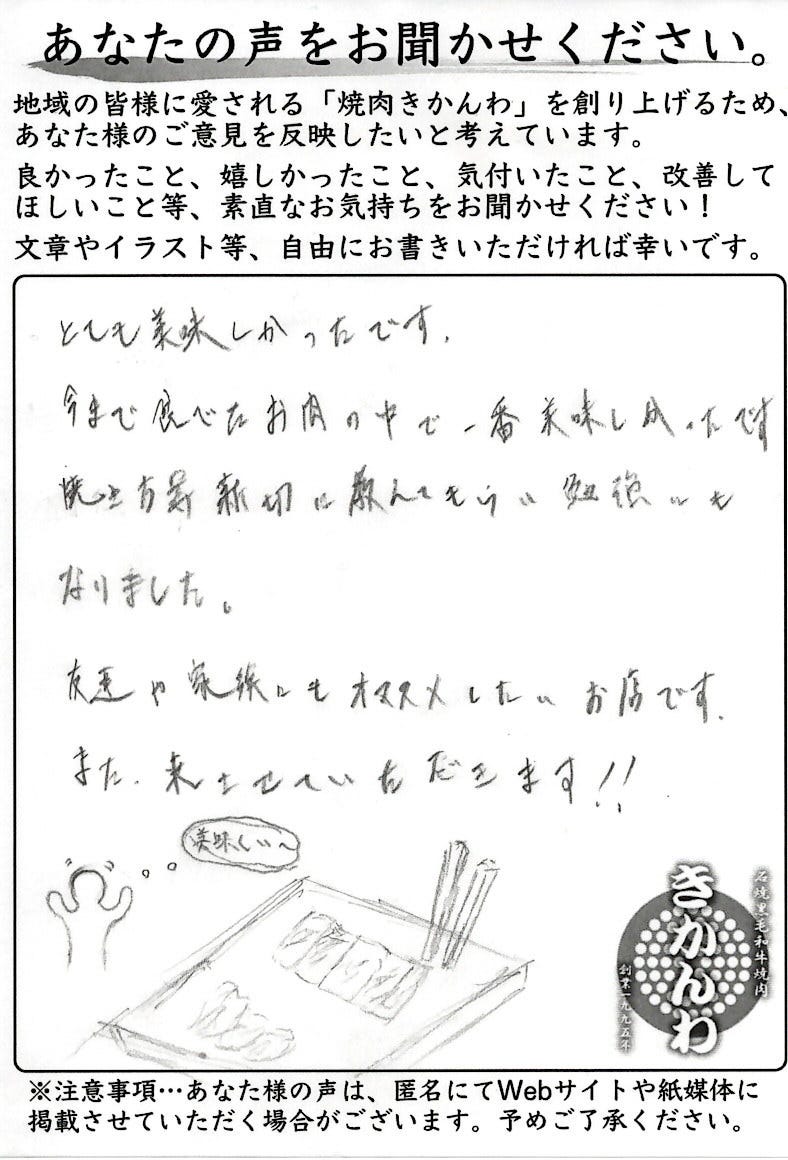 あなたの声をお聞かせください。
地域の皆様に愛される「焼肉きかんわ」を創り上げるため、
あなた様のご意見を反映したいと考えています。
良かったこと、嬉しかったこと、気付いたこと、改善して
ほしいこと等、素直なお気持ちをお聞かせください！
文章やイラスト等、自由にお書きいただければ幸いです。
とても美味しかったです。
今まで食べたお肉の中で一番美味しかったです
焼き方等親切に教えてもらい勉強にも
なりました。
友達や家族にもオススメしたいお店です。
また、来させていただきます!!
美味しい〜
石焼黒毛和牛焼肉
きかんわ
創業一九九五年
※注意事項…あなた様の声は、匿名にてWebサイトや紙媒体に
掲載させていただく場合がございます。予めご了承ください。